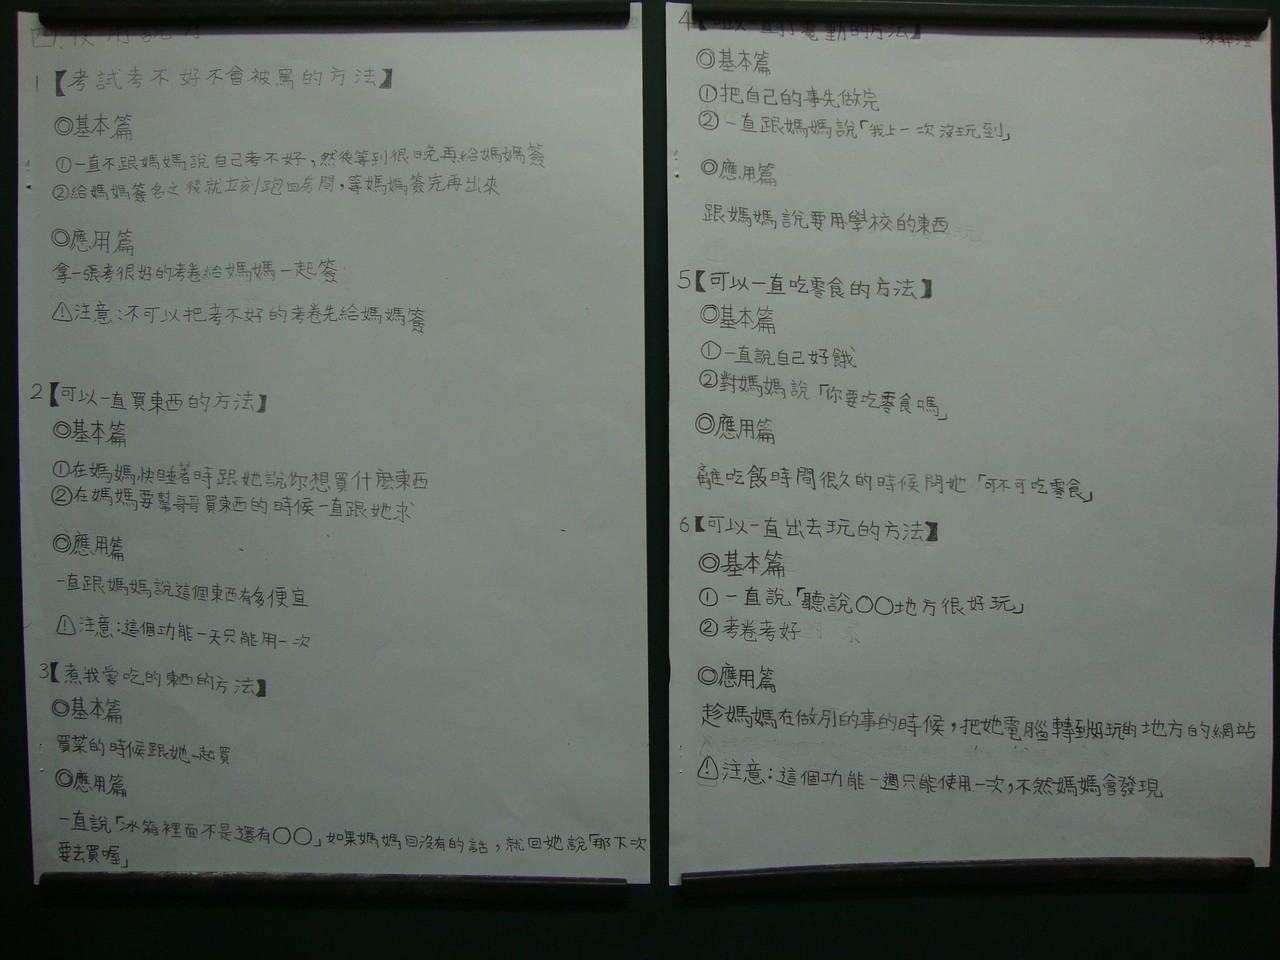 四.使用說明
1【考試考不好不會被罵的方法】
◎基本篇
①一直不跟媽媽說自己考不好,然後等到很晚再給媽媽簽
②給媽媽簽名之後就立刻跑回房間,等媽媽簽完再出來
◎應用篇
拿一張考很好的考卷給媽媽一起簽
⚠注意:不可以把考不好的考卷先給媽媽簽
2【可以一直買東西的方法】
◎基本篇
①在媽媽快睡著時跟她說你想買什麼東西
②在媽媽要幫哥哥買東西的時候一直跟她求
◎應用篇
一直跟媽媽說這個東西有多便宜
⚠注意:這個功能一天只能用一次
3【煮我愛吃的東西的方法】
◎基本篇
買菜的時候跟她一起買
◎應用篇
一直說「冰箱裡面不是還有○○」如果媽媽回沒有的話,就回她說「那下次
要去買喔」
4【可以一直打電動的方法】
◎基本篇
①把自己的事先做完
②一直跟媽媽說「我上一次沒玩到」
◎應用篇
跟媽媽說要用學校的東西
5【可以一直吃零食的方法】
◎基本篇
①一直說自己好餓
②對媽媽說「你要吃零食嗎」
◎應用篇
離吃飯時間很久的時候問她「可不可吃零食」
6【可以一直出去玩的方法】
◎基本篇
①一直說「聽說○○地方很好玩」
②考卷考好
◎應用篇
趁媽媽在做別的事的時候,把她電腦轉到好玩的地方的網站
⚠注意:這個功能一週只能使用一次,不然媽媽會發現